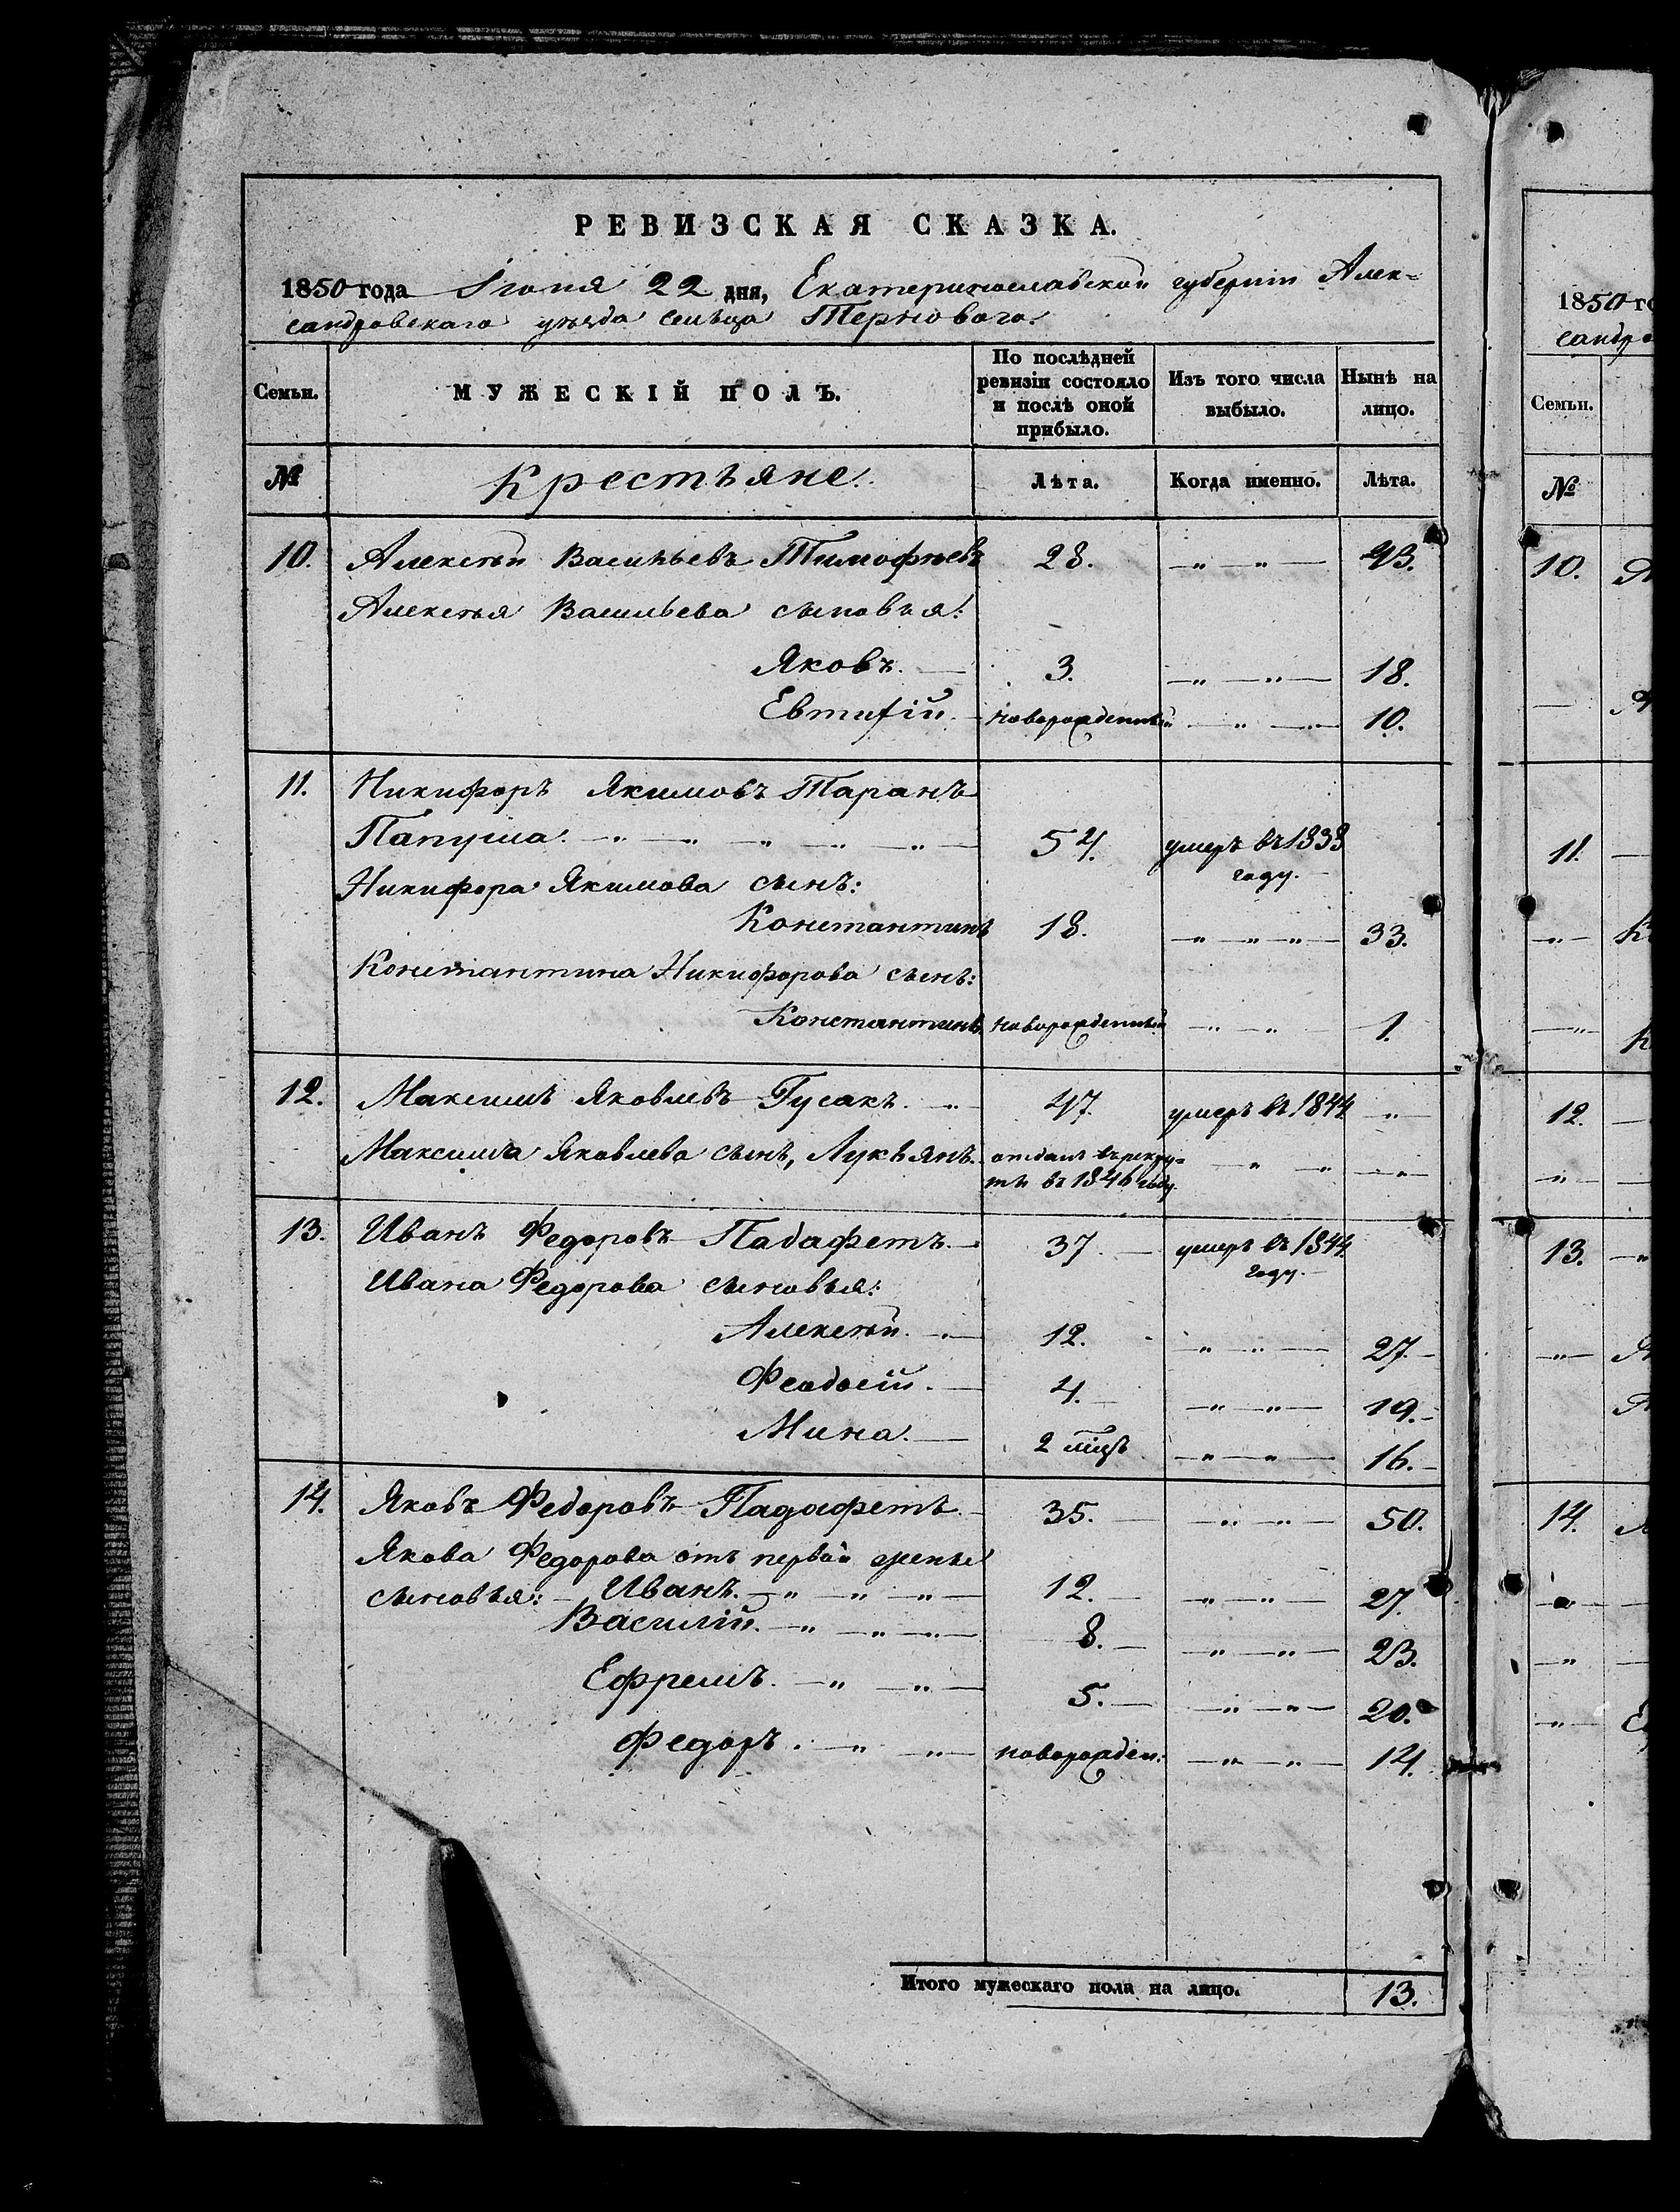 РЕВИЗСКАЯ СКАЗКА.
1850 года Іюня 22 дня, Екатеринославской губерніи Алек=
сандровскаго уѣзда сельца Терноваго.
Семьи. МУЖЕСКІЙ ПОЛЪ. По послѣдней ревизіи состояло и послѣ оной прибыло. Изъ того числа выбыло. Нынѣ на лицо.
№ Крестьяне. Лѣта. Когда именно. Лѣта.
10. Алексѣй Васильевъ Тимофѣевъ 28. —"—"— 43.
Алексѣя Васильева сыновья:
Яковъ. — 3. —"—"— 18.
Евтифій. — новорожденный —"—"— 10.
11. Никифоръ Якимовъ Таранъ
Папуша. —"—"—"—"—"— 54. умеръ въ 1838
году.
Никифора Якимова сынъ:
Константинъ 18. —"—"—"— 33.
Константина Никифорова сынъ:
Константинъ новорожденный —"—"— 1.
12. Максимъ Яковлевъ Гусакъ. —"— 47. умеръ въ 1844 —"—
Максима Яковлева сынъ, Лукьянъ. отданъ въ рекру=
ты въ 1846 году. —"—"— —"—
13. Иванъ Федоровъ Падафетъ. — 37. — умеръ въ 1844
году. —
Ивана Федорова сыновья:
Алексѣй. —"— 12. —"—"— 27. —
Феодосій. — 4. — —"—"— 19. —
Мина. — 2 мцъ —"—"— 16. —
14. Яковъ Федоровъ Падафетъ. — 35. — —"—"— 50.
Якова Федорова отъ первой жены
сыновья: — Иванъ. —"—"—"— 12. — —"—"— 27.
Василій. —"—"—"— 8. — —"—"— 23.
Ефремъ. —"—"— 5. — —"—"— 20.
Федоръ. —"—"— новорожден: —"—"— 14.
Итого мужескаго пола на лицо. 13.
1850 го
сандро
Семьи.
№
10. А
11. —
12. —
13. —"
14.